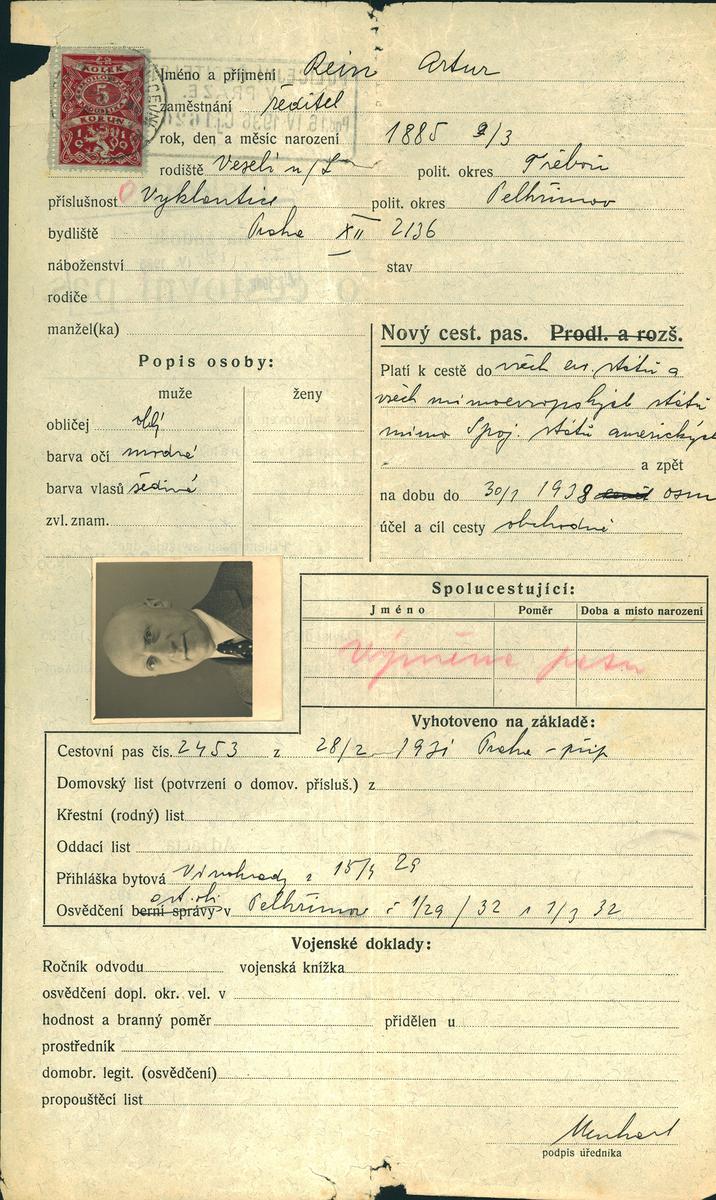 KOLEK
5
KORUN
Jméno a příjmení Rein Artur
zaměstnání ředitel
rok, den a měsíc narození 1885 9/3
rodiště Veselí n/L polit. okres Třeboň
příslušnost Vyklantice polit. okres Pelhřimov
bydliště Praha XII 2136
náboženství stav
rodiče
manžel(ka)
Nový cest. pas. Prodl. a rozš.
Popis osoby:
muže ženy
obličej
barva očí modré
barva vlasů šedivé
zvl. znam.
Platí k cestě do všech ev. států a
všech mimoevropských států
mimo Spoj. států amerických
a zpět
na dobu do 30/1 1938 osm
účel a cíl cesty obchodně
Spolucestující:
Jméno Poměr Doba a místo narození
Výměna pasu
Vyhotoveno na základě:
Cestovní pas čís. 2453 z 28/2 1931 Praha
Domovský list (potvrzení o domov. přísluš.) z
Křestní (rodný) list
Oddací list
Přihláška bytová Vinohrady z 15/9 29
Osvědčení berní správy v Pelhřimov č 1/29 / 32 1/3 32
Vojenské doklady:
Ročník odvodu vojenská knížka
osvědčení dopl. okr. vel. v
hodnost a branný poměr přidělen u
prostředník
domobr. legit. (osvědčení)
propouštěcí list
podpis úředníka